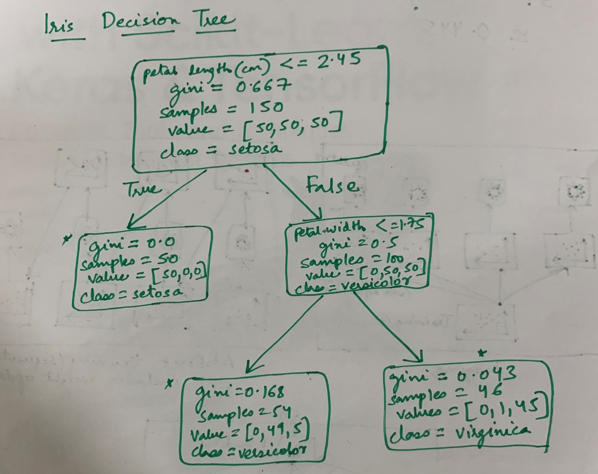 Iris Decision Tree
petal length (cm) <= 2.45
gini = 0.667
samples = 150
value = [50, 50, 50]
class = setosa
True
False
*
gini = 0.0
samples = 50
value = [50,0,0]
class = setosa
petal-width <=1.75
gini = 0.5
samples = 100
value = [0,50,50]
class = versicolor
*
gini = 0.168
samples = 54
value = [0,49,5]
class = versicolor
*
gini = 0.043
samples = 46
values = [0,1,45]
class = virginica